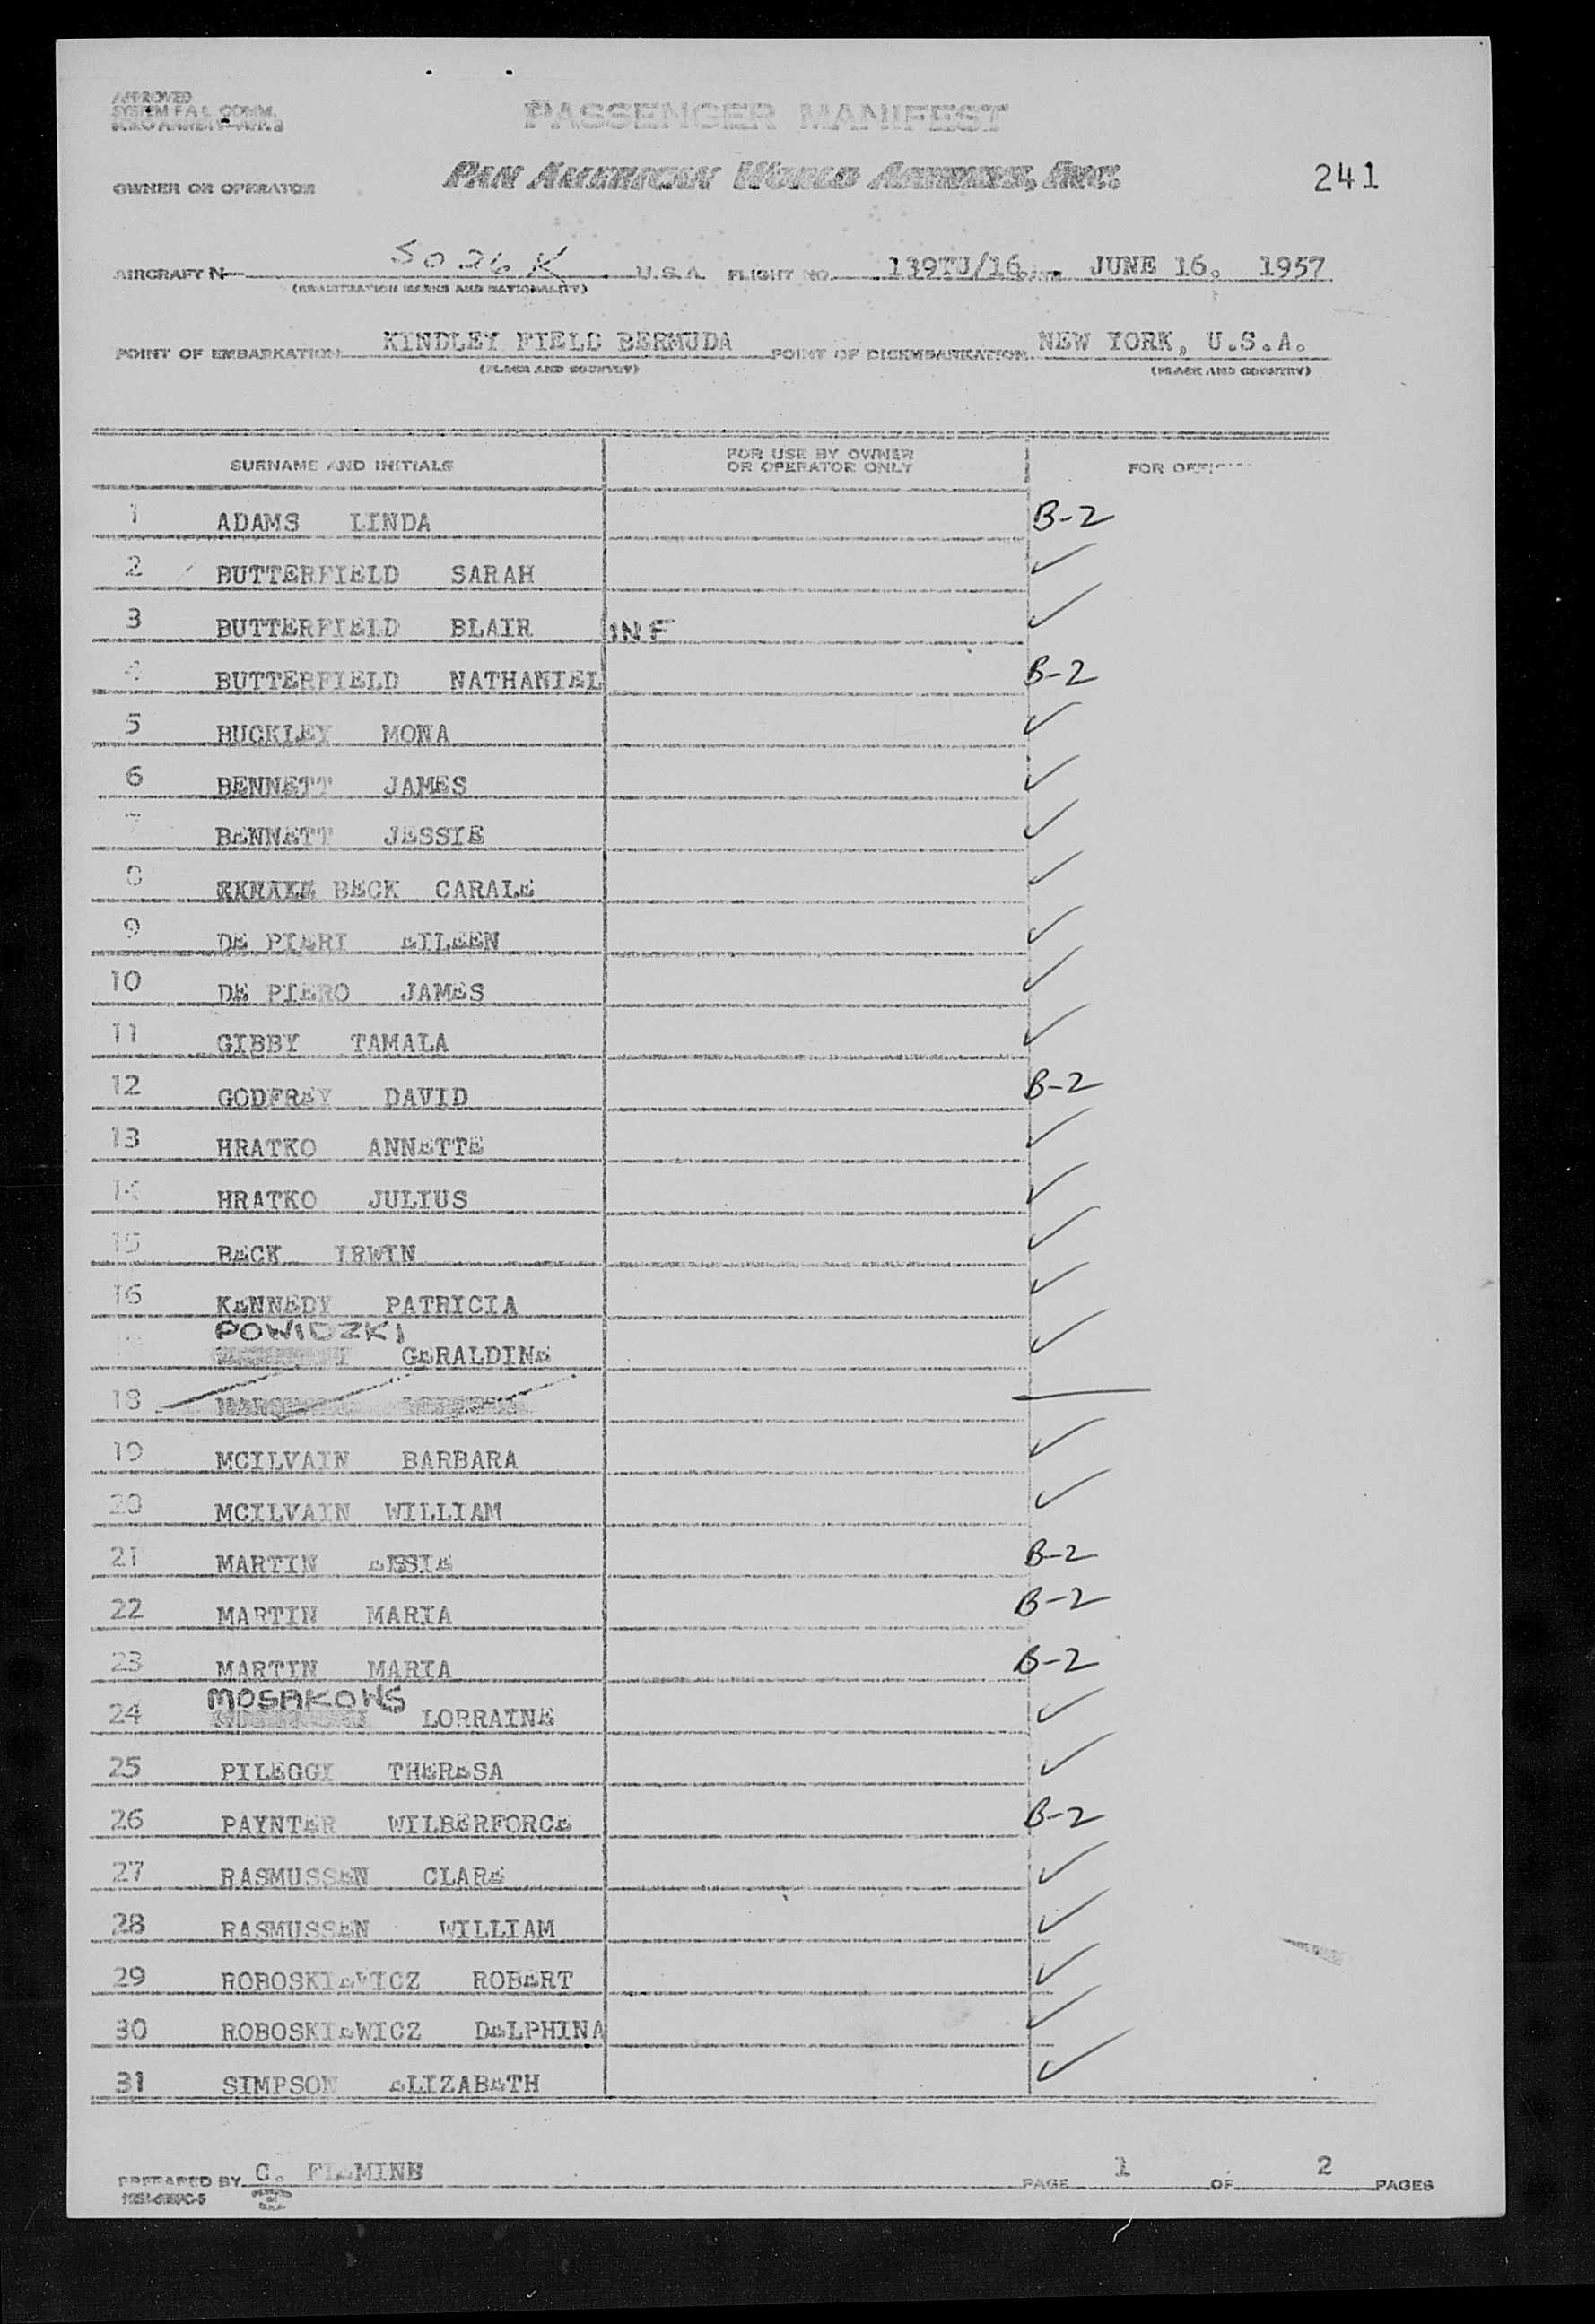 APPROVED
SYSTEM F A L COMM.
PASSENGER MANIFEST
OWNER OR OPERATOR PAN AMERICAN WORLD AIRWAYS, INC. 241
AIRCRAFT N 5026K U.S.A. FLIGHT NO. 139TJ/16 DATE JUNE 16, 1957
(REGISTRATION MARKS AND NATIONALITY)
POINT OF EMBARKATION KINDLEY FIELD BERMUDA POINT OF DISEMBARKATION NEW YORK, U.S.A.
(PLACE AND COUNTRY) (PLACE AND COUNTRY)
SURNAME AND INITIALS FOR USE BY OWNER OR OPERATOR ONLY FOR
1 ADAMS LINDA B-2
2 BUTTERFIELD SARAH ✓
3 BUTTERFIELD BLAIR INF ✓
4 BUTTERFIELD NATHANIEL B-2
5 BUCKLEY MONA ✓
6 BENNETT JAMES ✓
7 BENNETT JESSIE ✓
8 BECK CARALE ✓
9 DE PIERI EILEEN ✓
10 DE PIERO JAMES ✓
11 GIBBY TAMALA ✓
12 GODFREY DAVID B-2
13 HRATKO ANNETTE ✓
14 HRATKO JULIUS ✓
15 BECK IRWIN ✓
16 KENNEDY PATRICIA ✓
POWIDZKI GERALDINE ✓
18
19 MCILVAIN BARBARA ✓
20 MCILVAIN WILLIAM ✓
21 MARTIN ESSIE B-2
22 MARTIN MARIA B-2
23 MARTIN MARIA B-2
24 MOSAKOWS LORRAINE ✓
25 PILEGGI THERESA ✓
26 PAYNTER WILBERFORCE B-2
27 RASMUSSEN CLARE ✓
28 RASMUSSEN WILLIAM ✓
29 ROBOSKIEWICZ ROBERT ✓
30 ROBOSKIEWICZ DELPHINA ✓
31 SIMPSON ELIZABETH ✓
PREPARED BY C. FLEMINE PAGE 1 OF 2 PAGES